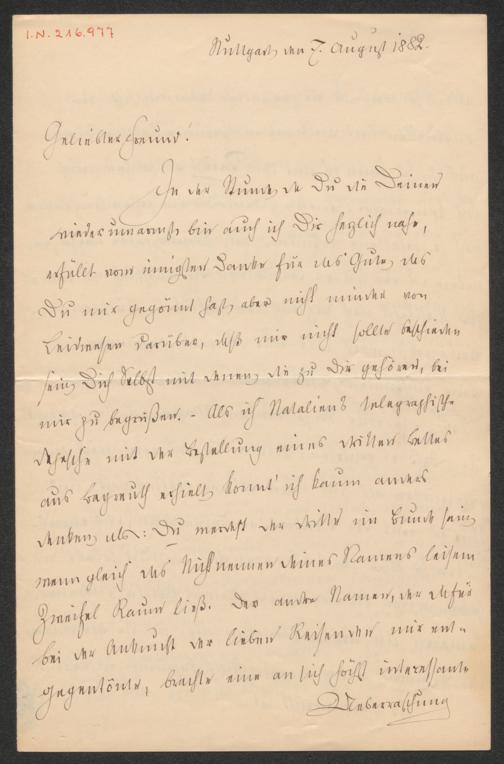 I.N. 216.977
Stuttgart, den 7. August 1882.
Geliebter Freund!
In der Stunde, da Du die Deinen
wiederumarmst, bin auch ich Dir herzlich nahe,
erfüllt vom innigsten Danke für das Gute, das
Du mir gegönnt hast, aber nicht minder von
Leidwesen darüber, daß mir nicht sollte beschieden
sein, Dich Selbst mit denen, die zu Dir gehören, bei
mir zu begrüßen. - Als ich Nataliens telegraphische
Depesche mit der Bestellung eines dritten Bettes
aus Bayreuth erhielt, konnt' ich kaum anders
denken, als: Du werdest der dritte im Bunde sein,
wenn gleich das Nichtnennen Deines Namens leisem
Zweifel Raum ließ. Der andre Namen, der dafür
bei der Ankunft der lieben Reisenden mir ent-
gegentönte, brachte eine an sich höchst interessante
Ueberraschung